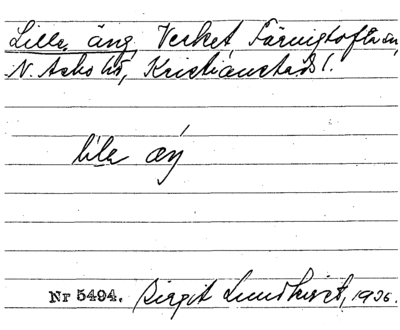 Lilla äng, Verket, Färingtofta sn,
N. Åsbo hd, Kristianstads l.
lila æŋ
Nr 5494. Birgit Lundkvist, 1936.